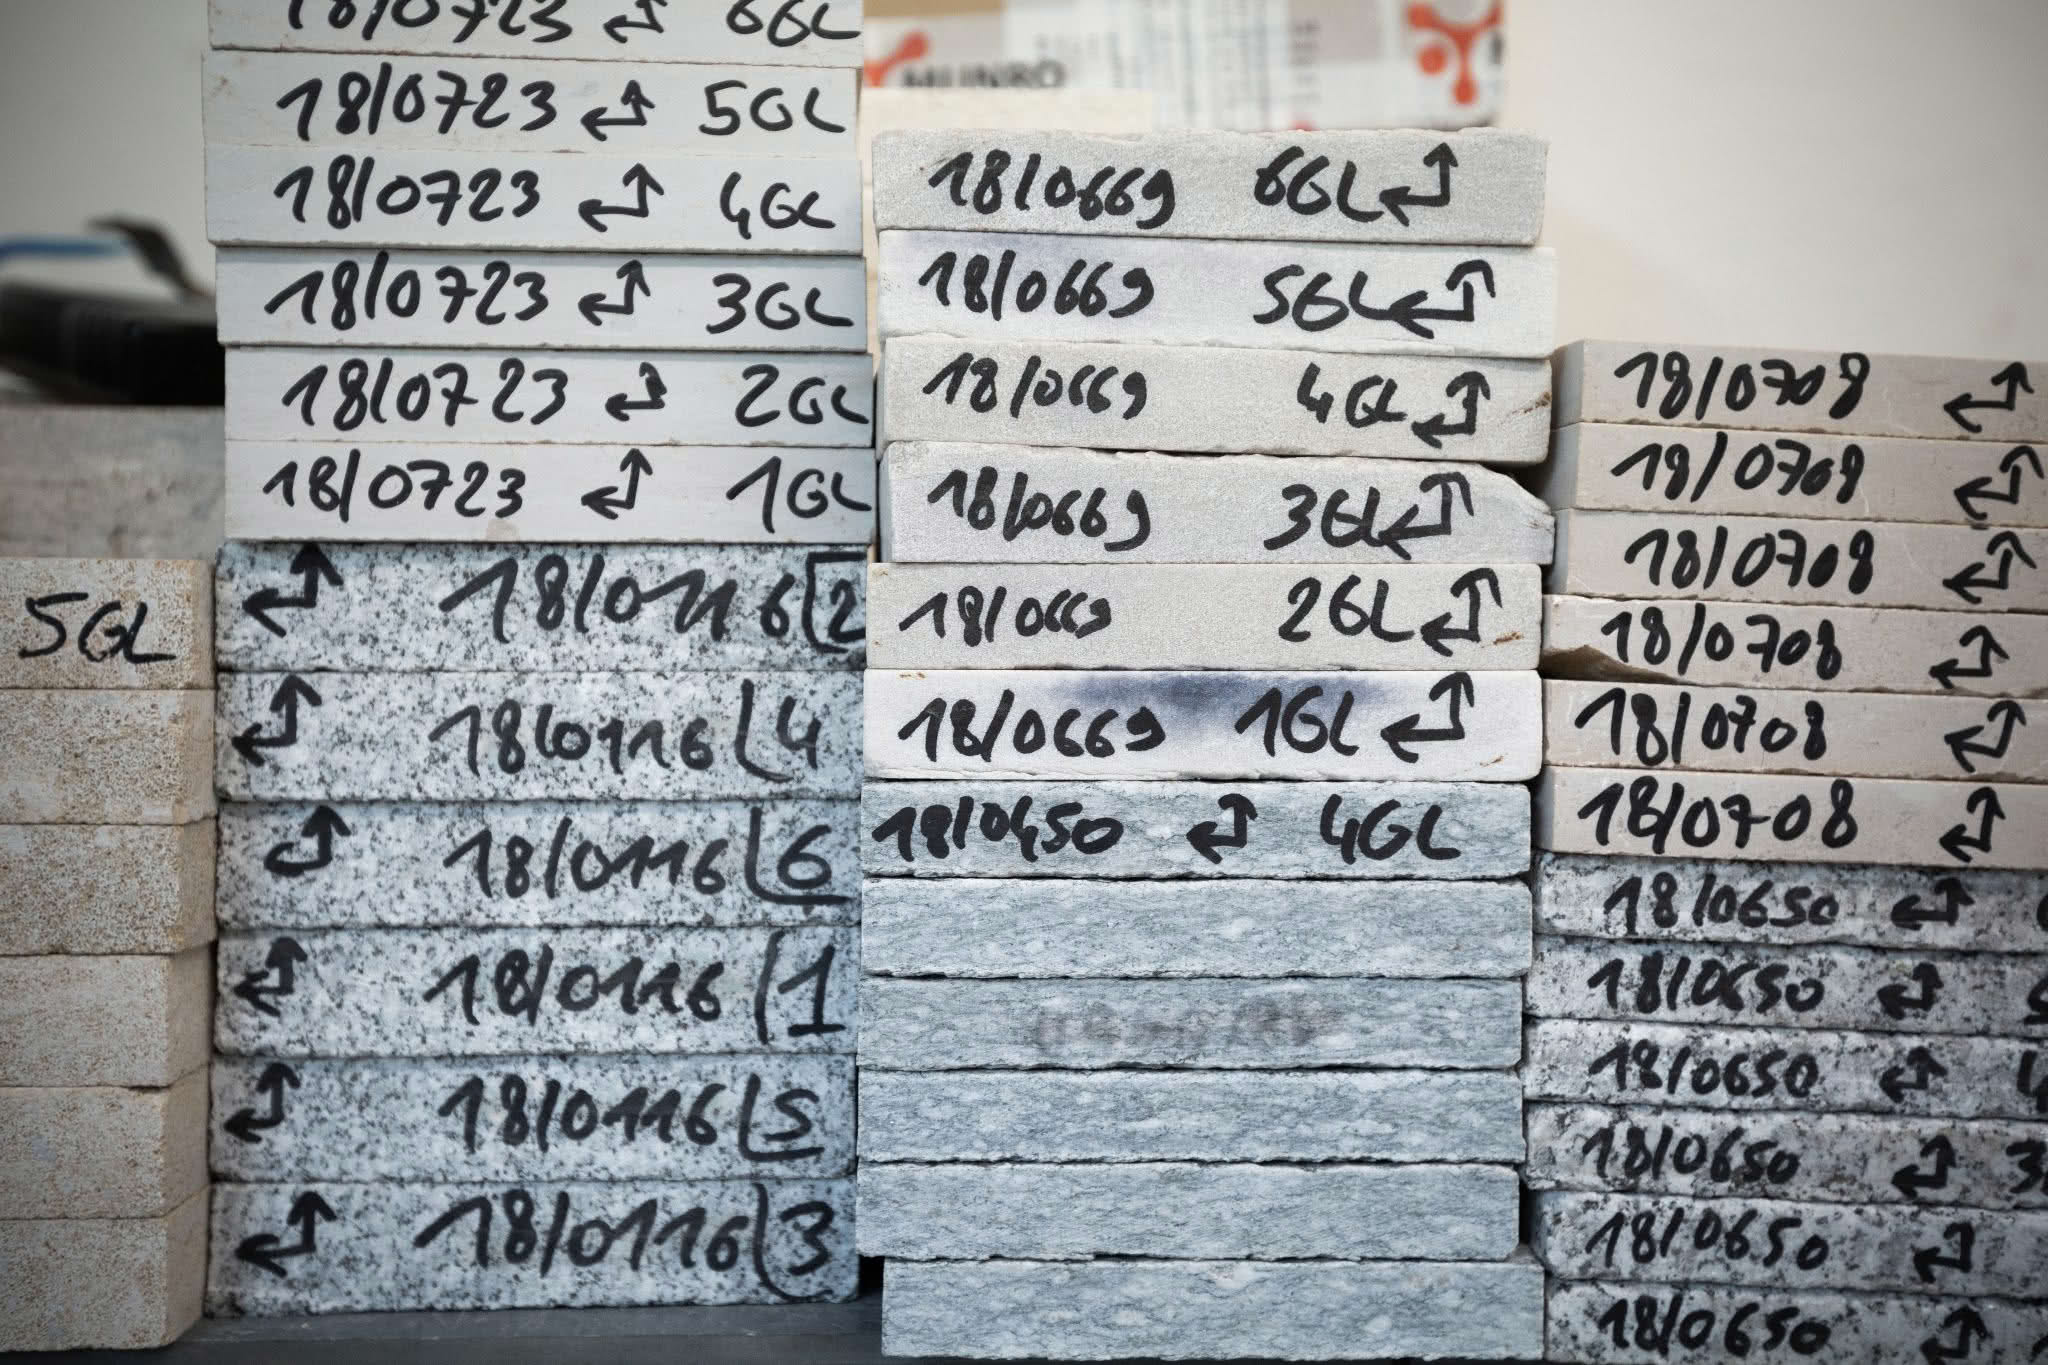 18/0723 6GL
18/0723 5GL
18/0723 4GL
18/0723 3GL
18/0723 2GL
18/0723 1GL
5GL
18/0116 2
18/0116 4
18/0116 6
18/0116 1
18/0116 5
18/0116 3
MUNRO
18/0669 6GL
18/0669 5GL
18/0669 4GL
18/0669 3GL
18/0669 2GL
18/0669 1GL
18/0450 4GL
18/0708
18/0708
18/0708
18/0708
18/0708
18/0708
18/0650
18/0650
18/0650
18/0650 3
18/0650
18/0650